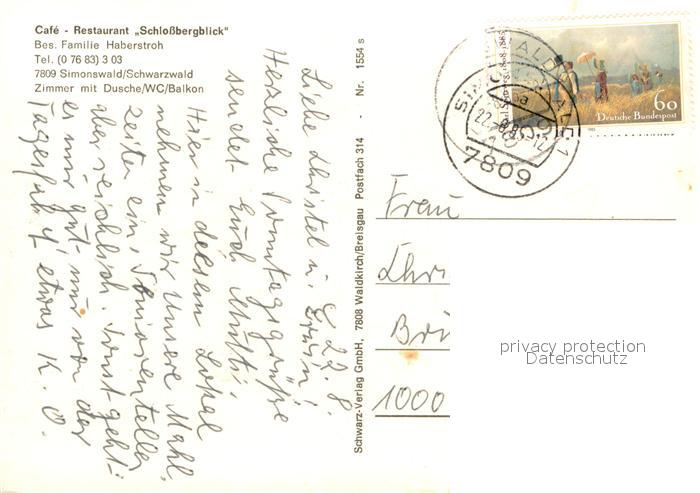 Café - Restaurant „Schloßbergblick"
Bes. Familie Haberstroh
Tel. (0 76 83) 3 03
7809 Simonswald/Schwarzwald
Zimmer mit Dusche/WC/Balkon
22. 8.
Liebe Christel u. Erwin!
Herzliche Sonntagsgrüße
sendet Euch Mutti
Hier in diesem Lokal
nehmen wir unsere Mahl
zeiten ein, Seniorenteller
aber reichlich. Sonst geht
es mir gut nur von der
Tagesfahrt etwas K. O.
Schwarz-Verlag GmbH, 7808 Waldkirch/Breisgau Postfach 314 - Nr. 1554 s
SIMONSWALD
7809
60
Deutsche Bundespost
Frau
Chri
1000
privacy protection
Datenschutz